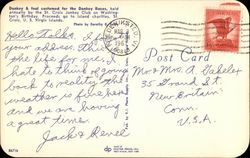 Donkey & foal costumed for the Donkey Races, held
annually by the St. Croix Jaycees Club on Washing-
ton's Birthday. Proceeds go to island charities. St.
Croix, U. S. Virgin Islands.
Photo by Dorothy
Hello Folks,
your address. This is
the life for me. I
hate to think of going
back to reality. The
weather is fine here
and we are having
a great time.
Jack & Renel
Post Card
Mr & Mrs. A. Gakeler
35 Grand St
New Britain
Conn.
U.S.A.